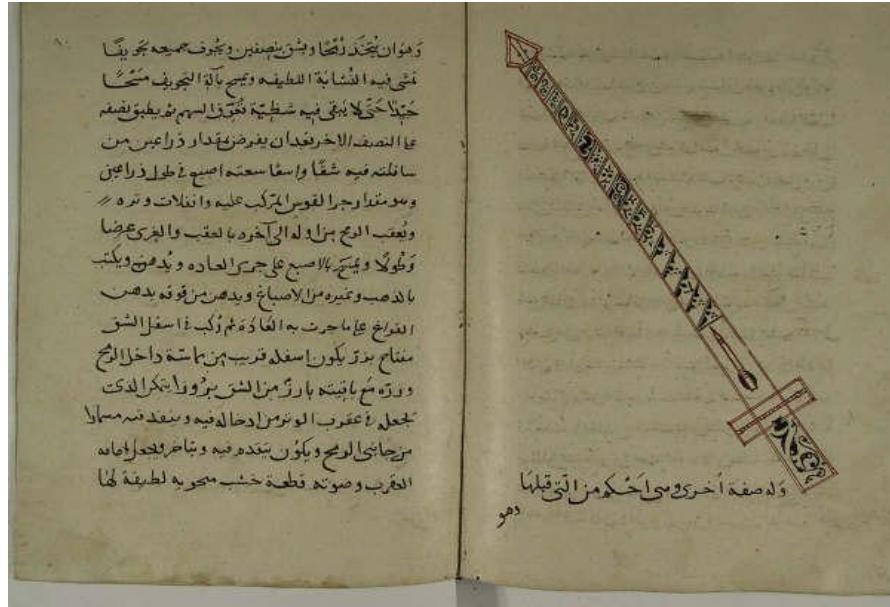 وله صفة اخرى وهى احكم من الّتى قبلها
وهو
وهو ان يتخذ رمحًا ويشق بنصفين ويجوف جميعه تجويفًا
تمشى فيه النشابة اللطيفه ويمسح بآلة التجويف مسحًا
جيّدا حتى لا يبقى فيه شظيّة تعوّق السهم ثم يطبق نصفه
على النصف الاخر بعد ان يفرض بمقدار ذراعين من
سافلته فيه شقًا واسعًا سعته اصبع فى طول ذراعين
وهو مقدار جر القوس المركب عليه وانفلات وتره
ويعقب الرمح من اوله الى آخره بالعقب والغرى عرضا
وطولًا ويمسح بالاصبع على جرى العاده ويدهن ويكتب
بالذهب وغيره من الاصباغ ويدهن من فوقه بدهن
على ما جرت به العادة ثم ركب فى اسفل الشق
مفتاح يكون اسفله قريب من داخل الرمح
مع باقيته بارز من الشق بروزا الذى
تجعله فى عقرب الوتر من ادخاله فيه وينفد فيه مسمارا
من جانبى الرمح ويكون ينفده فيه ويجعل امامه
العقرب وصوته قطعة خشب لطيفة لها